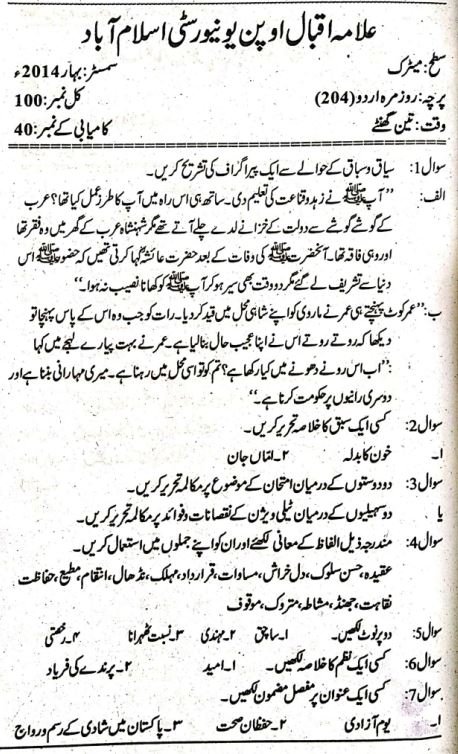 علامہ اقبال اوپن یونیورسٹی اسلام آباد
سطح: میٹرک سمسٹر: بہار 2014ء
پرچہ: روزمرہ اردو (204) کل نمبر: 100
وقت: تین گھنٹے کامیابی کے نمبر: 40
سوال1: سیاق و سباق کے حوالے سے ایک پیراگراف کی تشریح کریں۔
الف: ’’آپﷺ نے زہد و قناعت کی تعلیم دی۔ ساتھ ہی اس راہ میں آپ کا طرزِ عمل کیا تھا؟ عرب
کے گوشے گوشے سے دولت کے خزانے لدے چلے آتے تھے مگر شہنشاہ عرب کے گھر میں وہ فقر تھا
اور وہی فاقہ تھا۔ آنحضرتﷺ کی وفات کے بعد حضرت عائشہؓ کہا کرتی تھیں کہ حضورﷺ اس
دنیا سے تشریف لے گئے مگر دو وقت بھی سیر ہو کر آپﷺ کو کھانا نصیب نہ ہوا۔‘‘
ب: ’’عمر کوٹ پہنچتے ہی عمر نے ماروی کو اپنے شاہی محل میں قید کر دیا۔ رات کو جب وہ اس کے پاس پہنچا تو
دیکھا کہ روتے روتے اس نے اپنا عجیب حال بنا لیا ہے۔ عمر نے بہت پیارے لہجے میں کہا
:’’اب اس رونے دھونے میں کیا رکھا ہے؟ تم کو تو اسی محل میں رہنا ہے۔ میری مہارانی بننا ہے اور
دوسری رانیوں پر حکومت کرنا ہے۔‘‘
سوال2: کسی ایک سبق کا خلاصہ تحریر کریں۔
۱۔ خون کا بدلہ ۲۔ امّاں جان
سوال3: دو دوستوں کے درمیان امتحان کے موضوع پر مکالمہ تحریر کریں۔
یا دو سہیلیوں کے درمیان ٹیلی ویژن کے نقصانات و فوائد پر مکالمہ تحریر کریں۔
سوال4: مندرجہ ذیل الفاظ کے معانی لکھئے اور ان کو اپنے جملوں میں استعمال کریں۔
عقیدہ، حسن سلوک، دل خراش، مساوات، قرارداد، مہلک، نڈھال، انتقام، مطیع، حفاظت
نقاہت، جھنڈ، مشاطہ، متروک، موقوف
سوال5: دو پر نوٹ لکھیں۔ ۱۔ ساچق ۲۔ مہندی ۳۔ نسبت ٹھہرانا ۴۔ رخصتی
سوال6: کسی ایک نظم کا خلاصہ لکھیں۔ ۱۔ امید ۲۔ پرندے کی فریاد
سوال7: کسی ایک عنوان پر مفصل مضمون لکھیں۔
۱۔ یوم آزادی ۲۔ حفظانِ صحت ۳۔ پاکستان میں شادی کے رسم و رواج